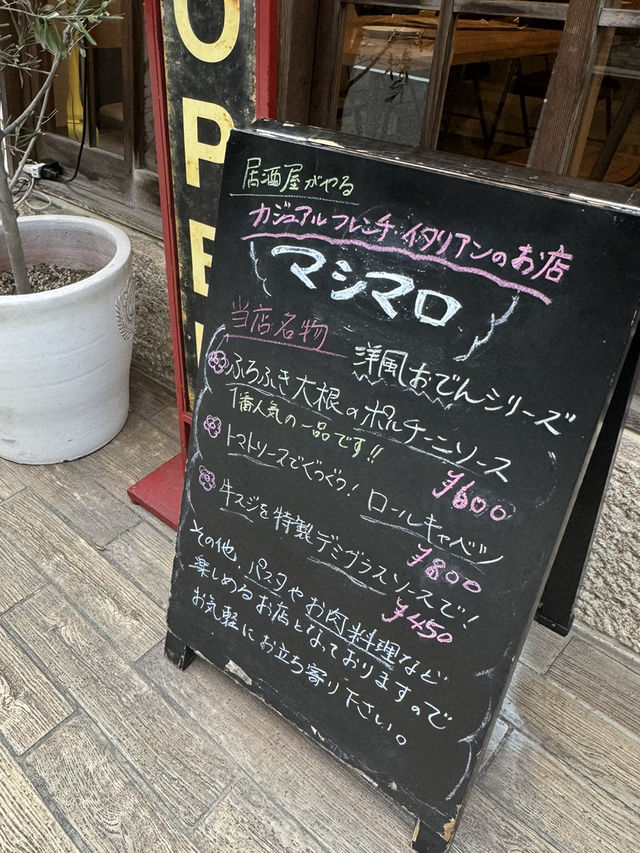 OPE
居酒屋がやる
カジュアルフレンチ・イタリアンのお店
マシマロ
当店名物
洋風おでんシリーズ
ふろふき大根のポルチーニソース
1番人気の一品です!!
¥600
トマトソースでぐつぐつ! ロールキャベツ
¥800
牛スジを特製デミグラスソースで!
¥450
その他、パスタやお肉料理など
楽しめるお店となっておりますので
お気軽にお立ち寄り下さい。